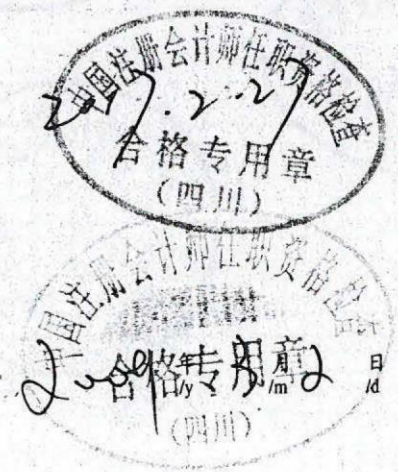 中国注册会计师任职资格检查
合格专用章
(四川)
中国注册会计师任职资格检
合格专用章
年 月 日
/y /m /d
(四川)